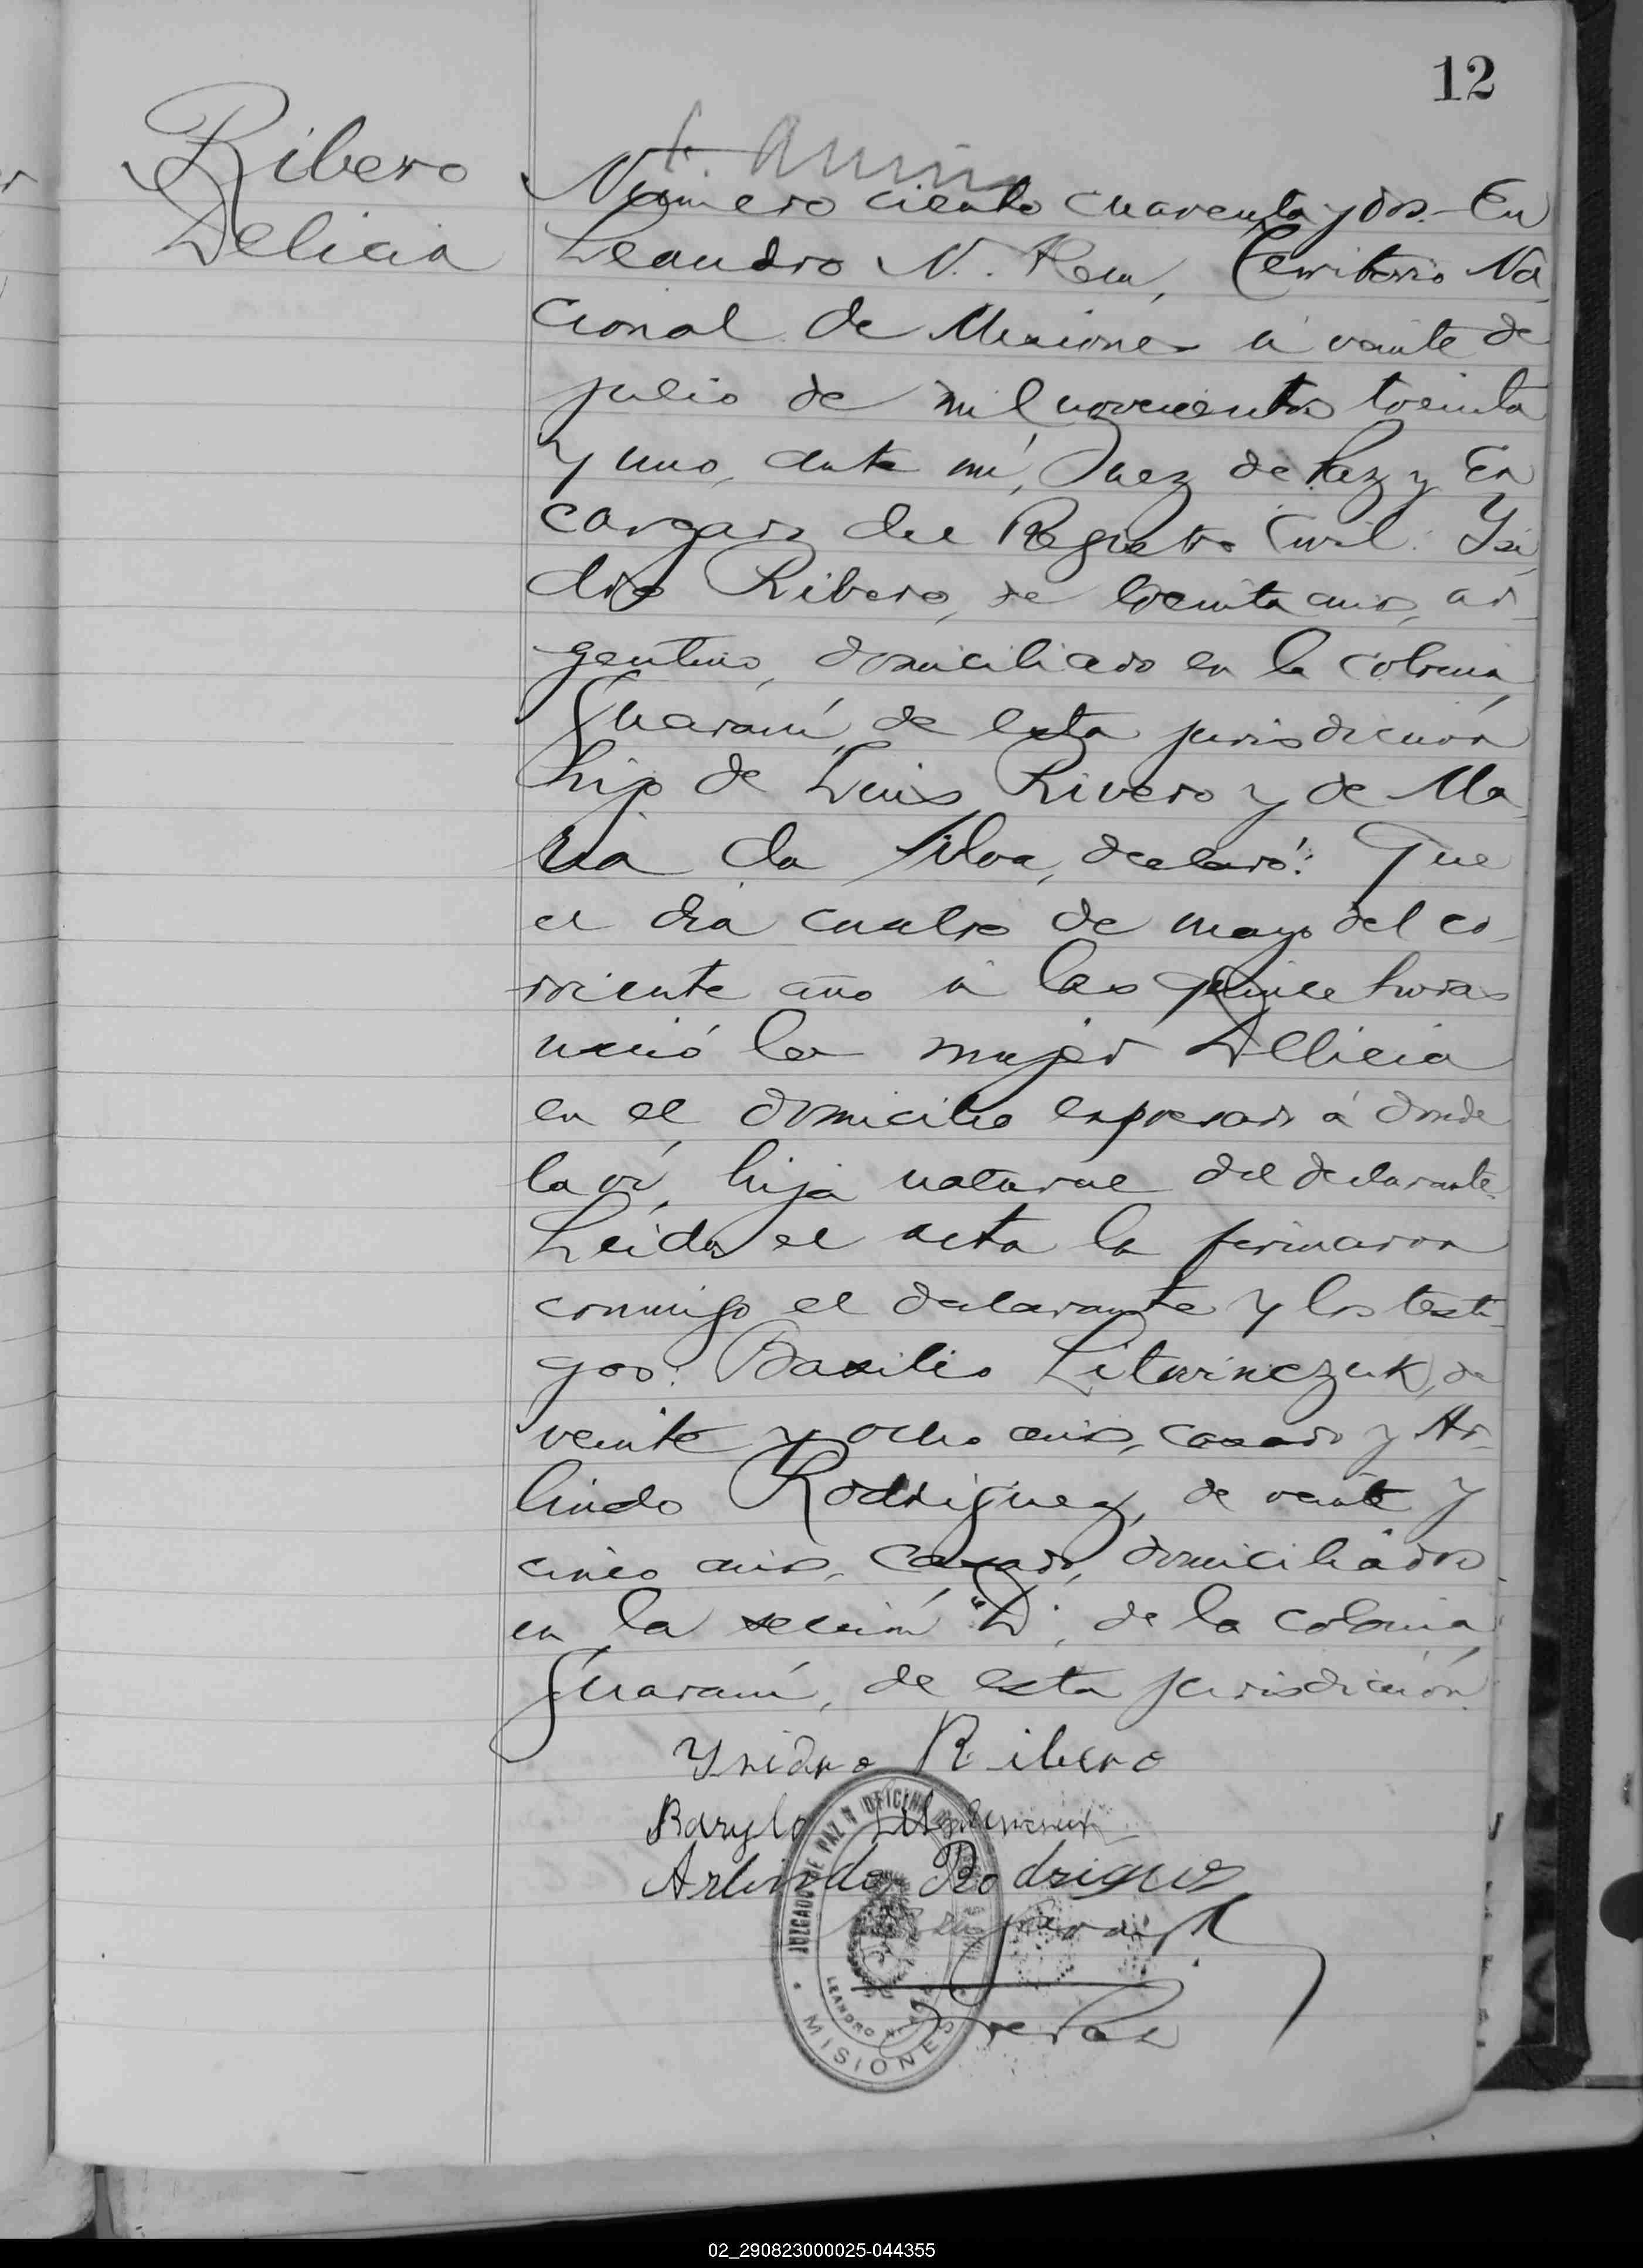 12
Ribero
Delicia
Número ciento cuarenta y dos.- En
Leandro N. Alem, Territorio Na-
cional de Misiones á veinte de
julio de mil novecientos treinta
y uno, ante mí, Juez de Paz y En
cargado del Registro Civil: Ysi-
dro Ribero, de treinta años, ar-
gentino, domiciliado en la colonia
Guaraní, de esta jurisdicción
hijo de Luis Rivero y de Ma-
ria da Silva, declaró: Que
el dia cuatro de mayo del co-
rriente año á las quince horas
nació la mujer Delicia
en el domicilio expresado á donde
la ví, hija natural del declarante.
Leida el acta la firmaron
conmigo el declarante y los testi-
gos: Basilio Litwinczuk, de
veinte y ocho años, casado y Ar-
lindo Rodriguez, de veinte y
cinco años, casado, domiciliados
en la sección "D", de la colonia
Guaraní, de esta jurisdicción
Ysidro Ribero
Arlindo Rodrigues
JUZGADO DE PAZ Y OFICINA
LEANDRO N.
MISIONES
02_290823000025-044355